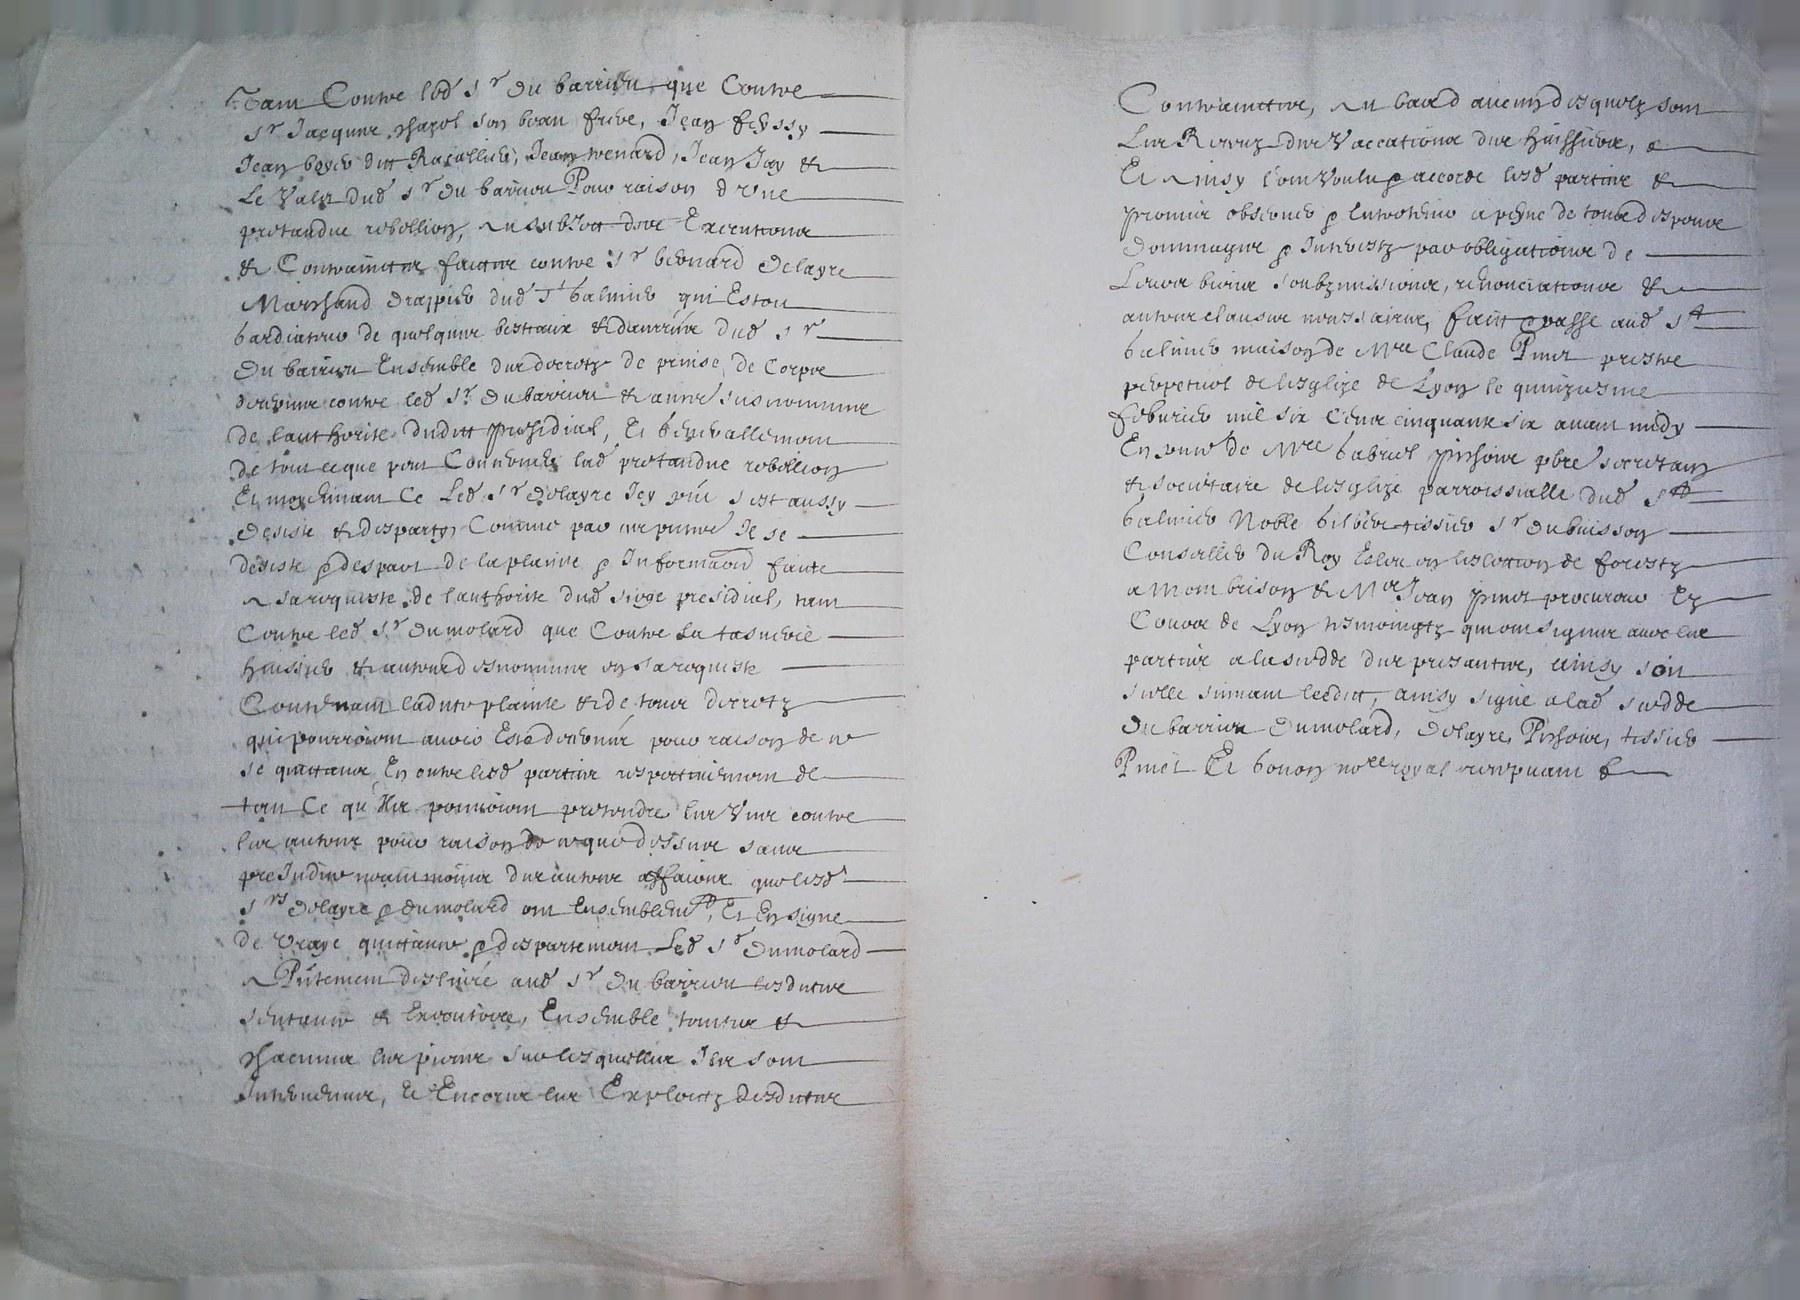 Tant Contre led Sr du barrieu que Contre
Sr Jacques chazol son beau frere, Jean feyssy
Jean boyer dit Racallier, Jean tenard, Jean Jay &
Le Valet dud Sr du barrieu Pour raison d'Une
pretandue rebellion, au subiect des Executions
& Contrainctes faictes contre Sr benard delayre
Marchand drappier dud St balmier qui Estoit
gardiateur de quelques bestiaux & danrées dud Sr
Du barrieu Ensemble des decretz de prinse de Corps
decernés contre led Sr Dubarrieu & autres susnommés
de lauthorité dudit presidial, Et generallement
de tout ce que peut Concerner lad pretandue rebellion
Et moyennant Ce Led Sr delayre Icy pnt s'est aussy
Desisté & desparty, Comme par ces pntes Il se
desiste & despart de la plainte & Informaon faicte
a sa requeste de lauthorité dud siege presidial, tant
Contre led Sr Dumolard que Contre La tasnerie
huissier & autres desnommés en sa requeste
Contenant ladite plainte & de tous decretz
qui pourroient avoir Esté decernés pour raison de ce
se quittans En outre lesd parties respectivement de
tout Ce qu'Ils pourroient pretendre les Uns contre
les autres pour raison de ce que dessus sans
preiudice neantmoings des autres affaires que lesd
Srs delayre & dumolard ont Ensemblemt, Et En signe
de vraye quittance & despartement Led Sr Dumolard
a Pntement deslivré aud Sr Du barrieu lesdites
sentance & Executoire, Ensemble toutes &
chacunes les pieces sur lesquelles Ils sont
Intervenues, Et Encores les Exploitz desdites
Contrainctes, au bas d aucuns desquelz sont
Les Receuz des Vaccations des huissiers,
Et Ainsy l'ont Voulu & accordé lesd parties &
promis observer & entretenir a peyne de tous despens
dommages & Interestz par obligations de
Leurs biens soubzmissions, renonciations &
autres clauses necessaires, faict & passé aud St
balmier maison de Mre Claude Pinet prestre
perpetuel de lesglize de Lyon le quinziesme
febvrier mil six Cens cinquante six avant midy
En pnce de Mre gabriel pinhoire pbre secretain
& societaire de lesglize parroissialle dud St
balmier Noble gilbert tissier Sr dubuisson
Conseiller du Roy Esleu en leslection de forestz
a Montbrison & Mre Jean pinet procureur Ez
Cours de Lyon tesmoingtz qui ont signés avec les
parties a la sedde des presantes, ainsy soit
sielle suivant ledit, ainsy signé a lad sedde
Du barrieu Dumolard, Delayre, Pinhoire, tissier
Pinet Et bonon nore royal recepvant